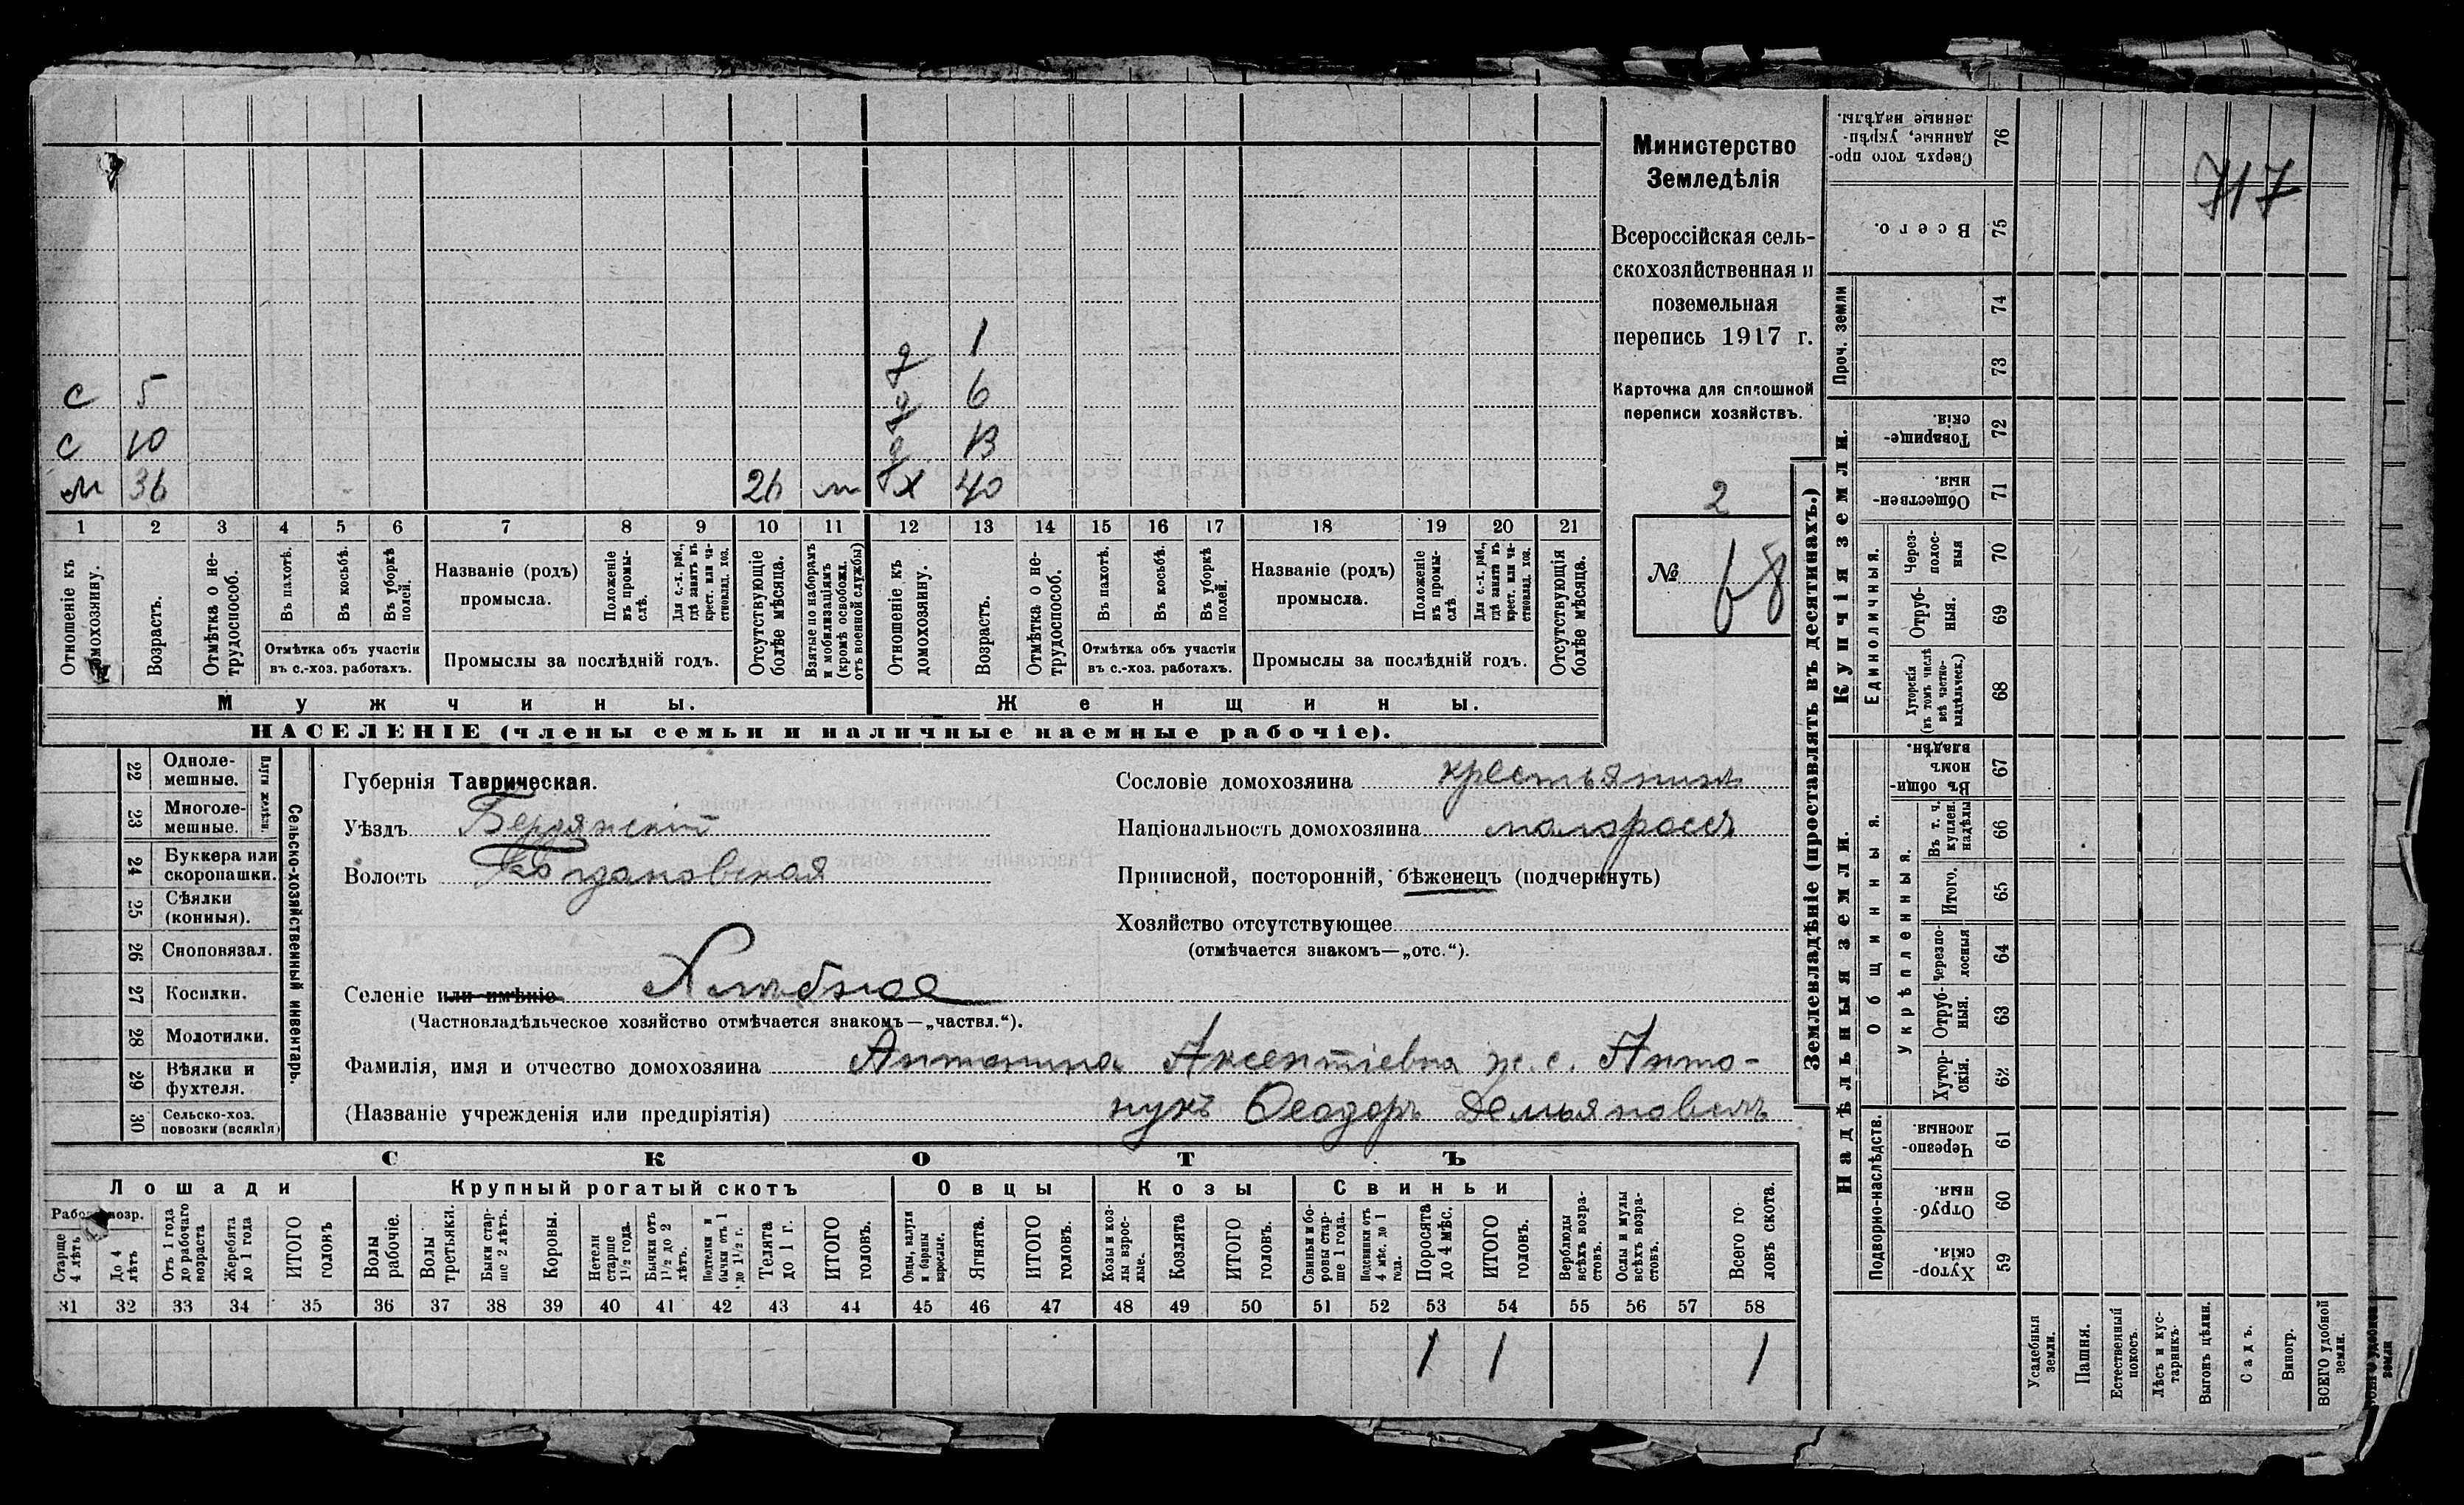 717
Министерство
Земледѣлія
Всероссійская сель-
скохозяйственная и
поземельная
перепись 1917 г.
Карточка для сплошной
переписи хозяйствъ.
2
№ 68
д 1
с 5 д 6
с 10 д 13
м 36 26 м х 40
1 2 3 4 5 6 7 8 9 10 11 12 13 14 15 16 17 18 19 20 21
Отношеніе къ домохозяину.
Возрастъ.
Отмѣтка о не-
трудоспособ.
Въ пахотѣ.
Въ косьбѣ.
Въ уборкѣ
полей.
Отмѣтка объ участіи
въ с.-хоз. работахъ.
Названіе (родъ)
промысла.
Положеніе
въ промы-
слѣ.
Для с.-х. раб.,
гдѣ занятъ въ
крест. или ча-
стновлад. хоз.
Промыслы за послѣдній годъ.
Отсутствующіе
болѣе мѣсяца.
Взятые по наборамъ
и мобилизаціямъ
(кромѣ освобожд.
отъ военной службы)
Отношеніе къ
домохозяину.
Возрастъ.
Отмѣтка о не-
трудоспособ.
Въ пахотѣ.
Въ косьбѣ.
Въ уборкѣ
полей.
Отмѣтка объ участіи
въ с.-хоз. работахъ.
Названіе (родъ)
промысла.
Положеніе
въ промы-
слѣ
Для с.-х. раб.,
гдѣ занята въ
крест. или ча-
стновлад. хоз.
Промыслы за послѣдній годъ.
Отсутствующія
болѣе мѣсяца.
Мужчины.
Женщины.
НАСЕЛЕНІЕ (члены семьи и наличные наемные рабочіе).
22 Одноле-
мешные.
23 Многоле-
мешные.
Плуги желѣзн.
24 Буккера или
скоропашки.
25 Сѣялки
(конныя).
26 Сноповязал.
27 Косилки.
28 Молотилки.
29 Вѣялки и
фухтеля.
30 Сельско-хоз.
повозки (всякія)
Сельско-хозяйственный инвентарь.
Губернія Таврическая.
Уѣздъ Бердянскій
Волость Богдановская
Селеніе или имѣніе Хлѣбное
(Частновладѣльческое хозяйство отмѣчается знакомъ—„частвл.“).
Сословіе домохозяина крестьянинъ
Національность домохозяина малороссъ
Приписной, посторонній, бѣженецъ (подчеркнуть)
Хозяйство отсутствующее
(отмѣчается знакомъ—„отс.“).
Фамилія, имя и отчество домохозяина Антонина Аксентіевна ж. с. Анто-
(Названіе учрежденія или предпріятія) нукъ Феодоръ Демьяновичъ
СКОТЪ
Лошади Крупный рогатый скотъ Овцы Козы Свиньи
возр.
Старше
4 лѣтъ
До 4
лѣтъ
Отъ 1 года
до рабочаго
возраста
Жеребята
до 1 года
ИТОГО
головъ
Волы
рабочіе.
Волы
третьяки.
Быки стар-
ше 2 лѣтъ.
Коровы.
Нетели
старше
1½ года.
Бычки отъ
1½ до 2
лѣтъ.
Подтелки и
бычки отъ 1
до 1½ г.
Телята
до 1 г.
ИТОГО
головъ.
Овцы, валухи
и бараны
взрослые.
Ягнята.
ИТОГО
головъ.
Козы и коз-
лы взрос-
лые.
Козлята
ИТОГО
головъ.
Свиньи и бо-
ровы стар-
ше 1 года.
Подсвинки отъ
4 мѣс. до 1
года.
Поросята
до 4 мѣс.
ИТОГО
головъ.
Верблюды
всѣхъ возра-
стовъ.
Ослы и мулы
всѣхъ возра-
стовъ.
Всего го-
ловъ скота.
31 32 33 34 35 36 37 38 39 40 41 42 43 44 45 46 47 48 49 50 51 52 53 54 55 56 57 58
1 1 1
Землевладѣніе (проставлять въ десятинахъ.)
Надѣльныя земли.
Купчія земли.
Проч. земли
Подворно-наслѣдств.
Общинныя.
Укрѣпленныя.
Единоличныя.
Сверхъ того про-
данные, укрѣп-
ленные надѣлы. 76
Всего. 75
74
73
Товарище-
скія. 72
Обществен-
ныя 71
Через-
полос-
ныя 70
Отруб-
ныя. 69
Хуторскія
(въ томъ числѣ
всѣ частно-
владѣльческ.) 68
Въ общин-
номъ
владѣн. 67
Въ т. ч.
куплен.
надѣлы 66
Итого. 65
Черезпо-
лосныя 64
Отруб-
ныя. 63
Хутор-
скія. 62
Черезпо-
лосныя. 61
Отруб-
ныя. 60
Хутор-
скія. 59
Усадебныя
земли.
Пашня.
Естественный
покосъ.
Лѣсъ и кус-
тарникъ.
Выгонъ цѣлин.
Садъ.
Виногр.
ВСЕГО удобной
земли.